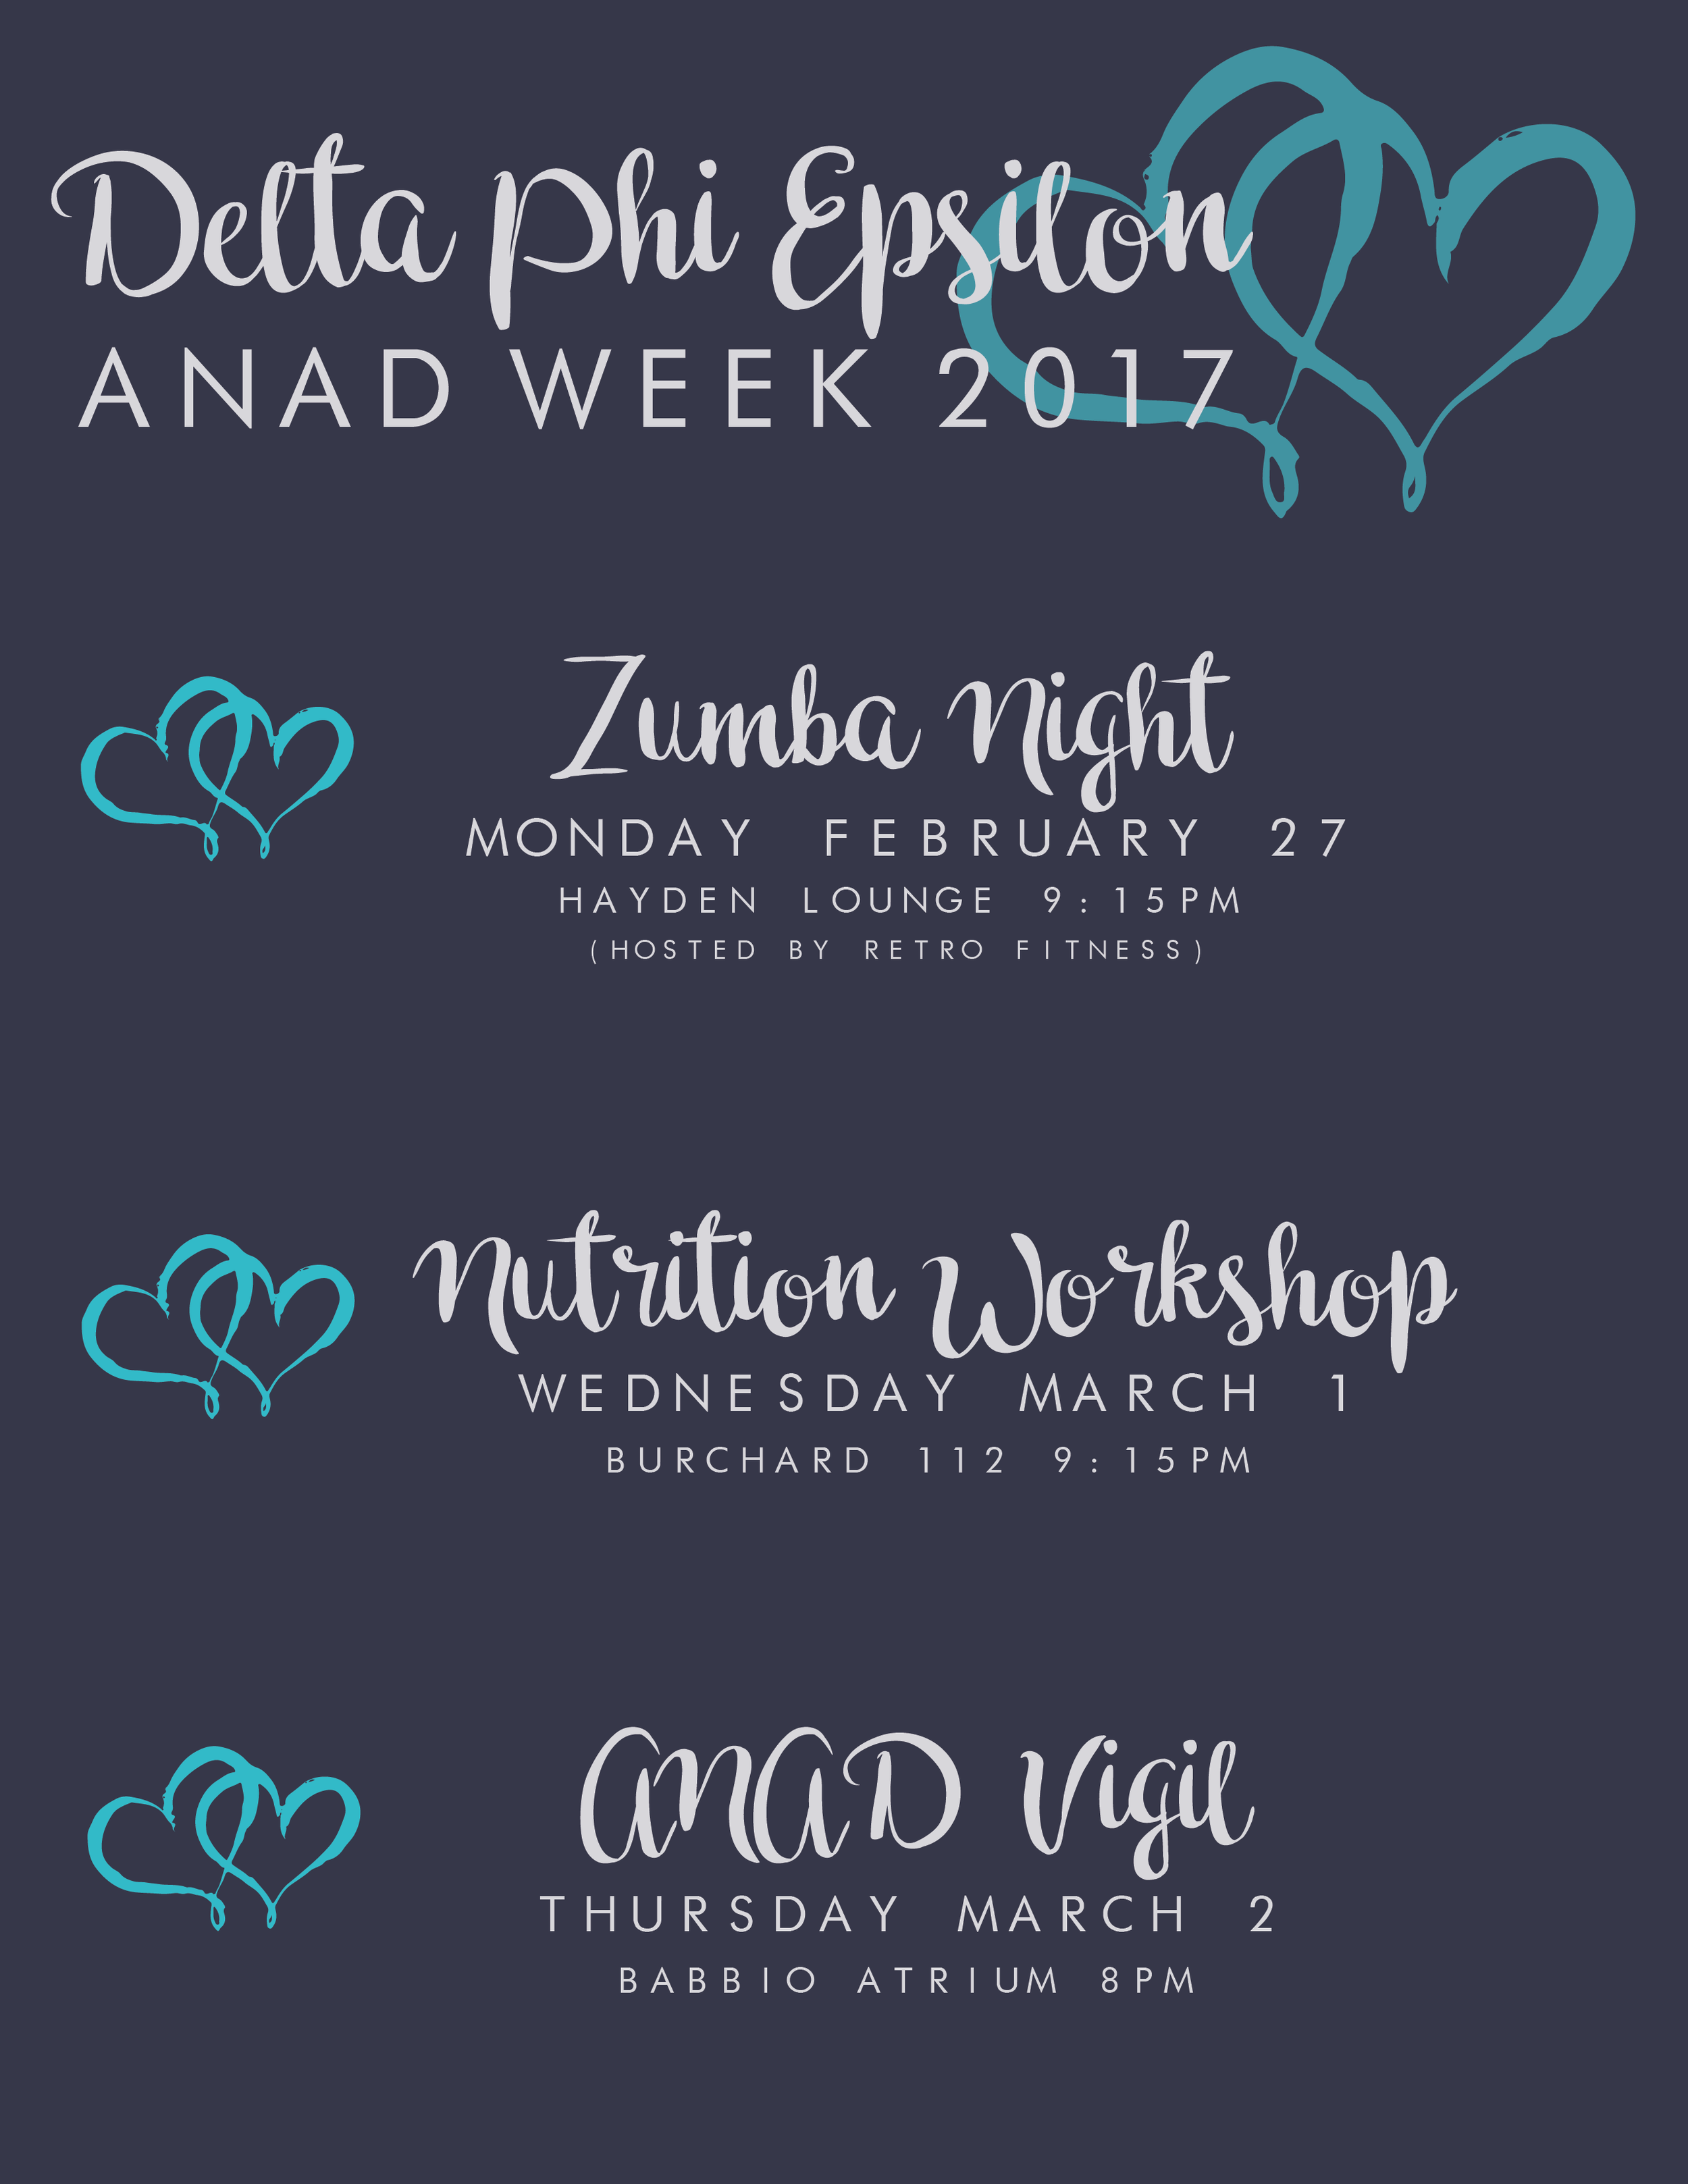 Delta Phi Epsilon
ANAD WEEK 2017
Zumba Night
MONDAY FEBRUARY 27
HAYDEN LOUNGE 9:15PM
(HOSTED BY RETRO FITNESS)
Nutrition Workshop
WEDNESDAY MARCH 1
BURCHARD 112 9:15PM
ANAD Vigil
THURSDAY MARCH 2
BABBIO ATRIUM 8PM